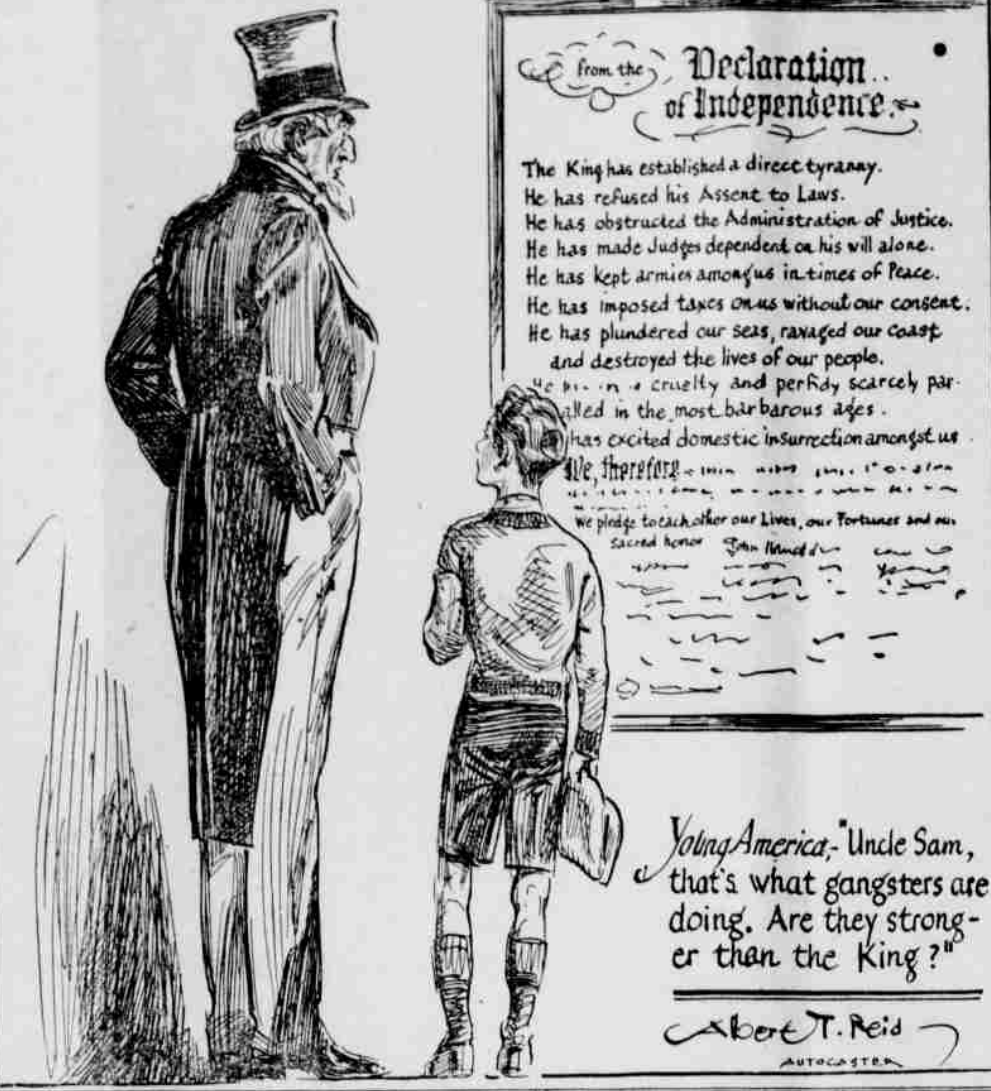 from the Declaration
of Independence.
The King has established a direct tyranny.
He has refused his Assent to Laws.
He has obstructed the Administration of Justice.
He has made Judges dependent on his will alone.
He has kept armies among us in times of Peace.
He has imposed taxes on us without our consent.
He has plundered our seas, ravaged our coast
and destroyed the lives of our people.
cruelty and perfidy scarcely par-
alled in the most barbarous ages.
has excited domestic insurrection amongst us
We, therefore
We pledge to each other our Lives, our Fortunes and our
sacred honor John
Young America,- "Uncle Sam,
that's what gangsters are
doing. Are they strong-
er than the King?"
Albert T. Reid
AUTOCASTER